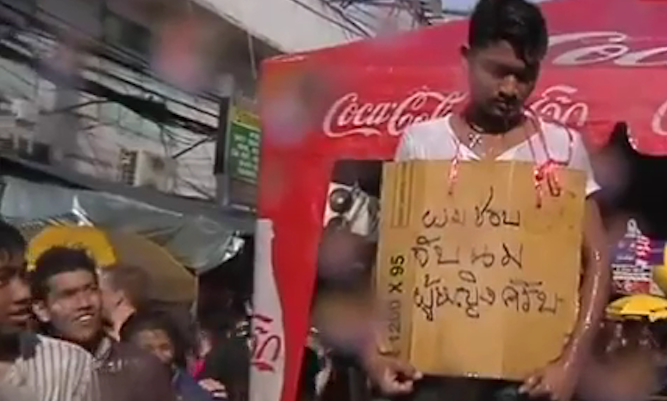 Coca-Cola
โค้ก
ผมชอบ
จับนม
ผู้หญิงครับ
1200 X 95